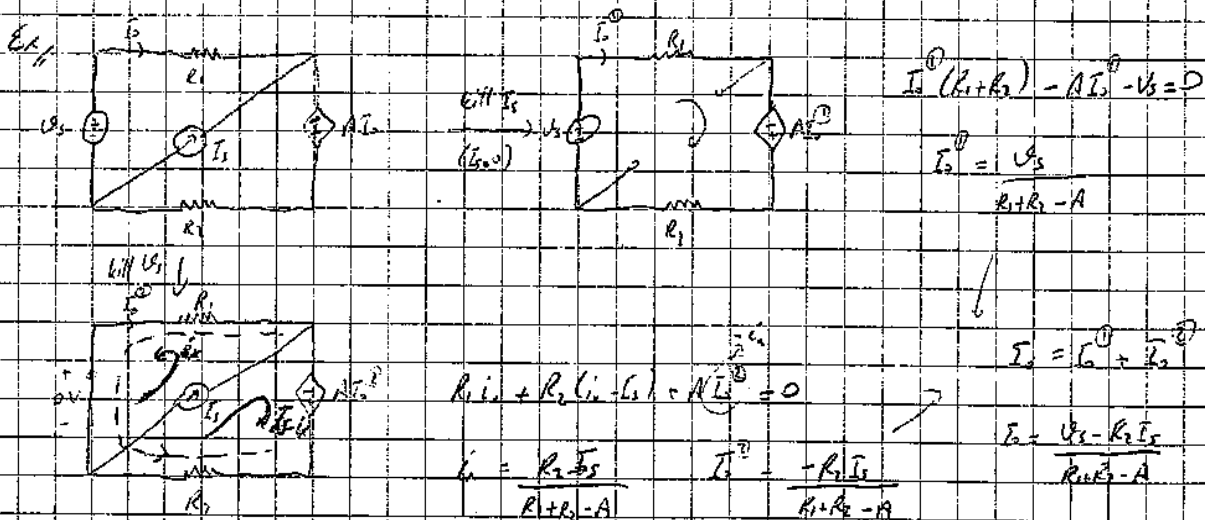 Ex//
I₀ R₁
Vs Is AI₀
R₂
kill Is
(Is=0)
I₀① R₁
Vs AI₀①
R₂
I₀①(R₁+R₂) - AI₀① - Vs = 0
I₀① = Vs / (R₁+R₂-A)
kill Vs
I₀② R₁
+ 0V - ix Is AI₀②
R₂
R₁ix + R₂(ix - Is) + AI₀② = 0
-ix
ix = R₂Is / (R₁+R₂-A)
I₀② = -R₂Is / (R₁+R₂-A)
I₀ = I₀① + I₀②
I₀ = (Vs - R₂Is) / (R₁+R₂-A)